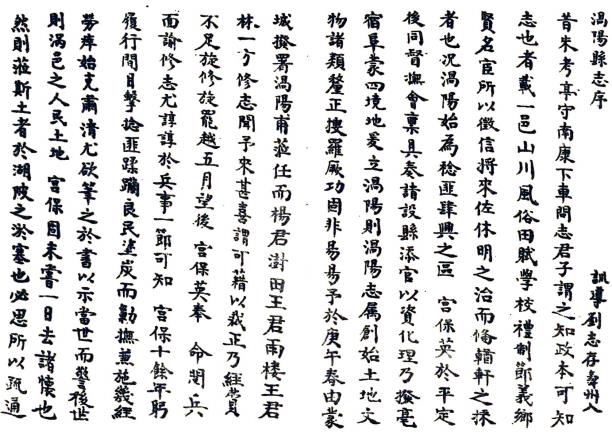 渦陽縣志序 訓導劉志存亳州人
昔朱考亭守南康下車問志君子謂之知政本可知
志也者載一邑山川風俗田賦學校禮制節義鄉
賢名宦所以徵信將來佐休明之治而備輶軒之採
者也況渦陽始為捻匪肆興之區 宮保英於平定
後同督撫會稟具奏請設縣添官以資化理乃撥亳
宿阜蒙四境地爰立渦陽則渦陽志属創始土地文
物諸類釐正搜羅厥功固非易易予於庚午春由蒙
城撥署渦陽甫蒞任而楊君澍田王君雨樓王君
林一方修志聞予來甚喜謂可藉以裁正乃經費
不足旋修旋罷越五月望後 宮保英奉 命閱兵
而諭修志尤諄諄於兵事一節可知 宮保十餘年躬
履行間目擊捻匪蹂躪良民塗炭而勦撫兼施幾經
勞瘁始克肅清尤欲筆之於書以示當世而警後世
則渦邑之人民土地 宮保固未嘗一日去諸懷也
然則蒞斯土者於湖陂之淤塞也必思所以疏通